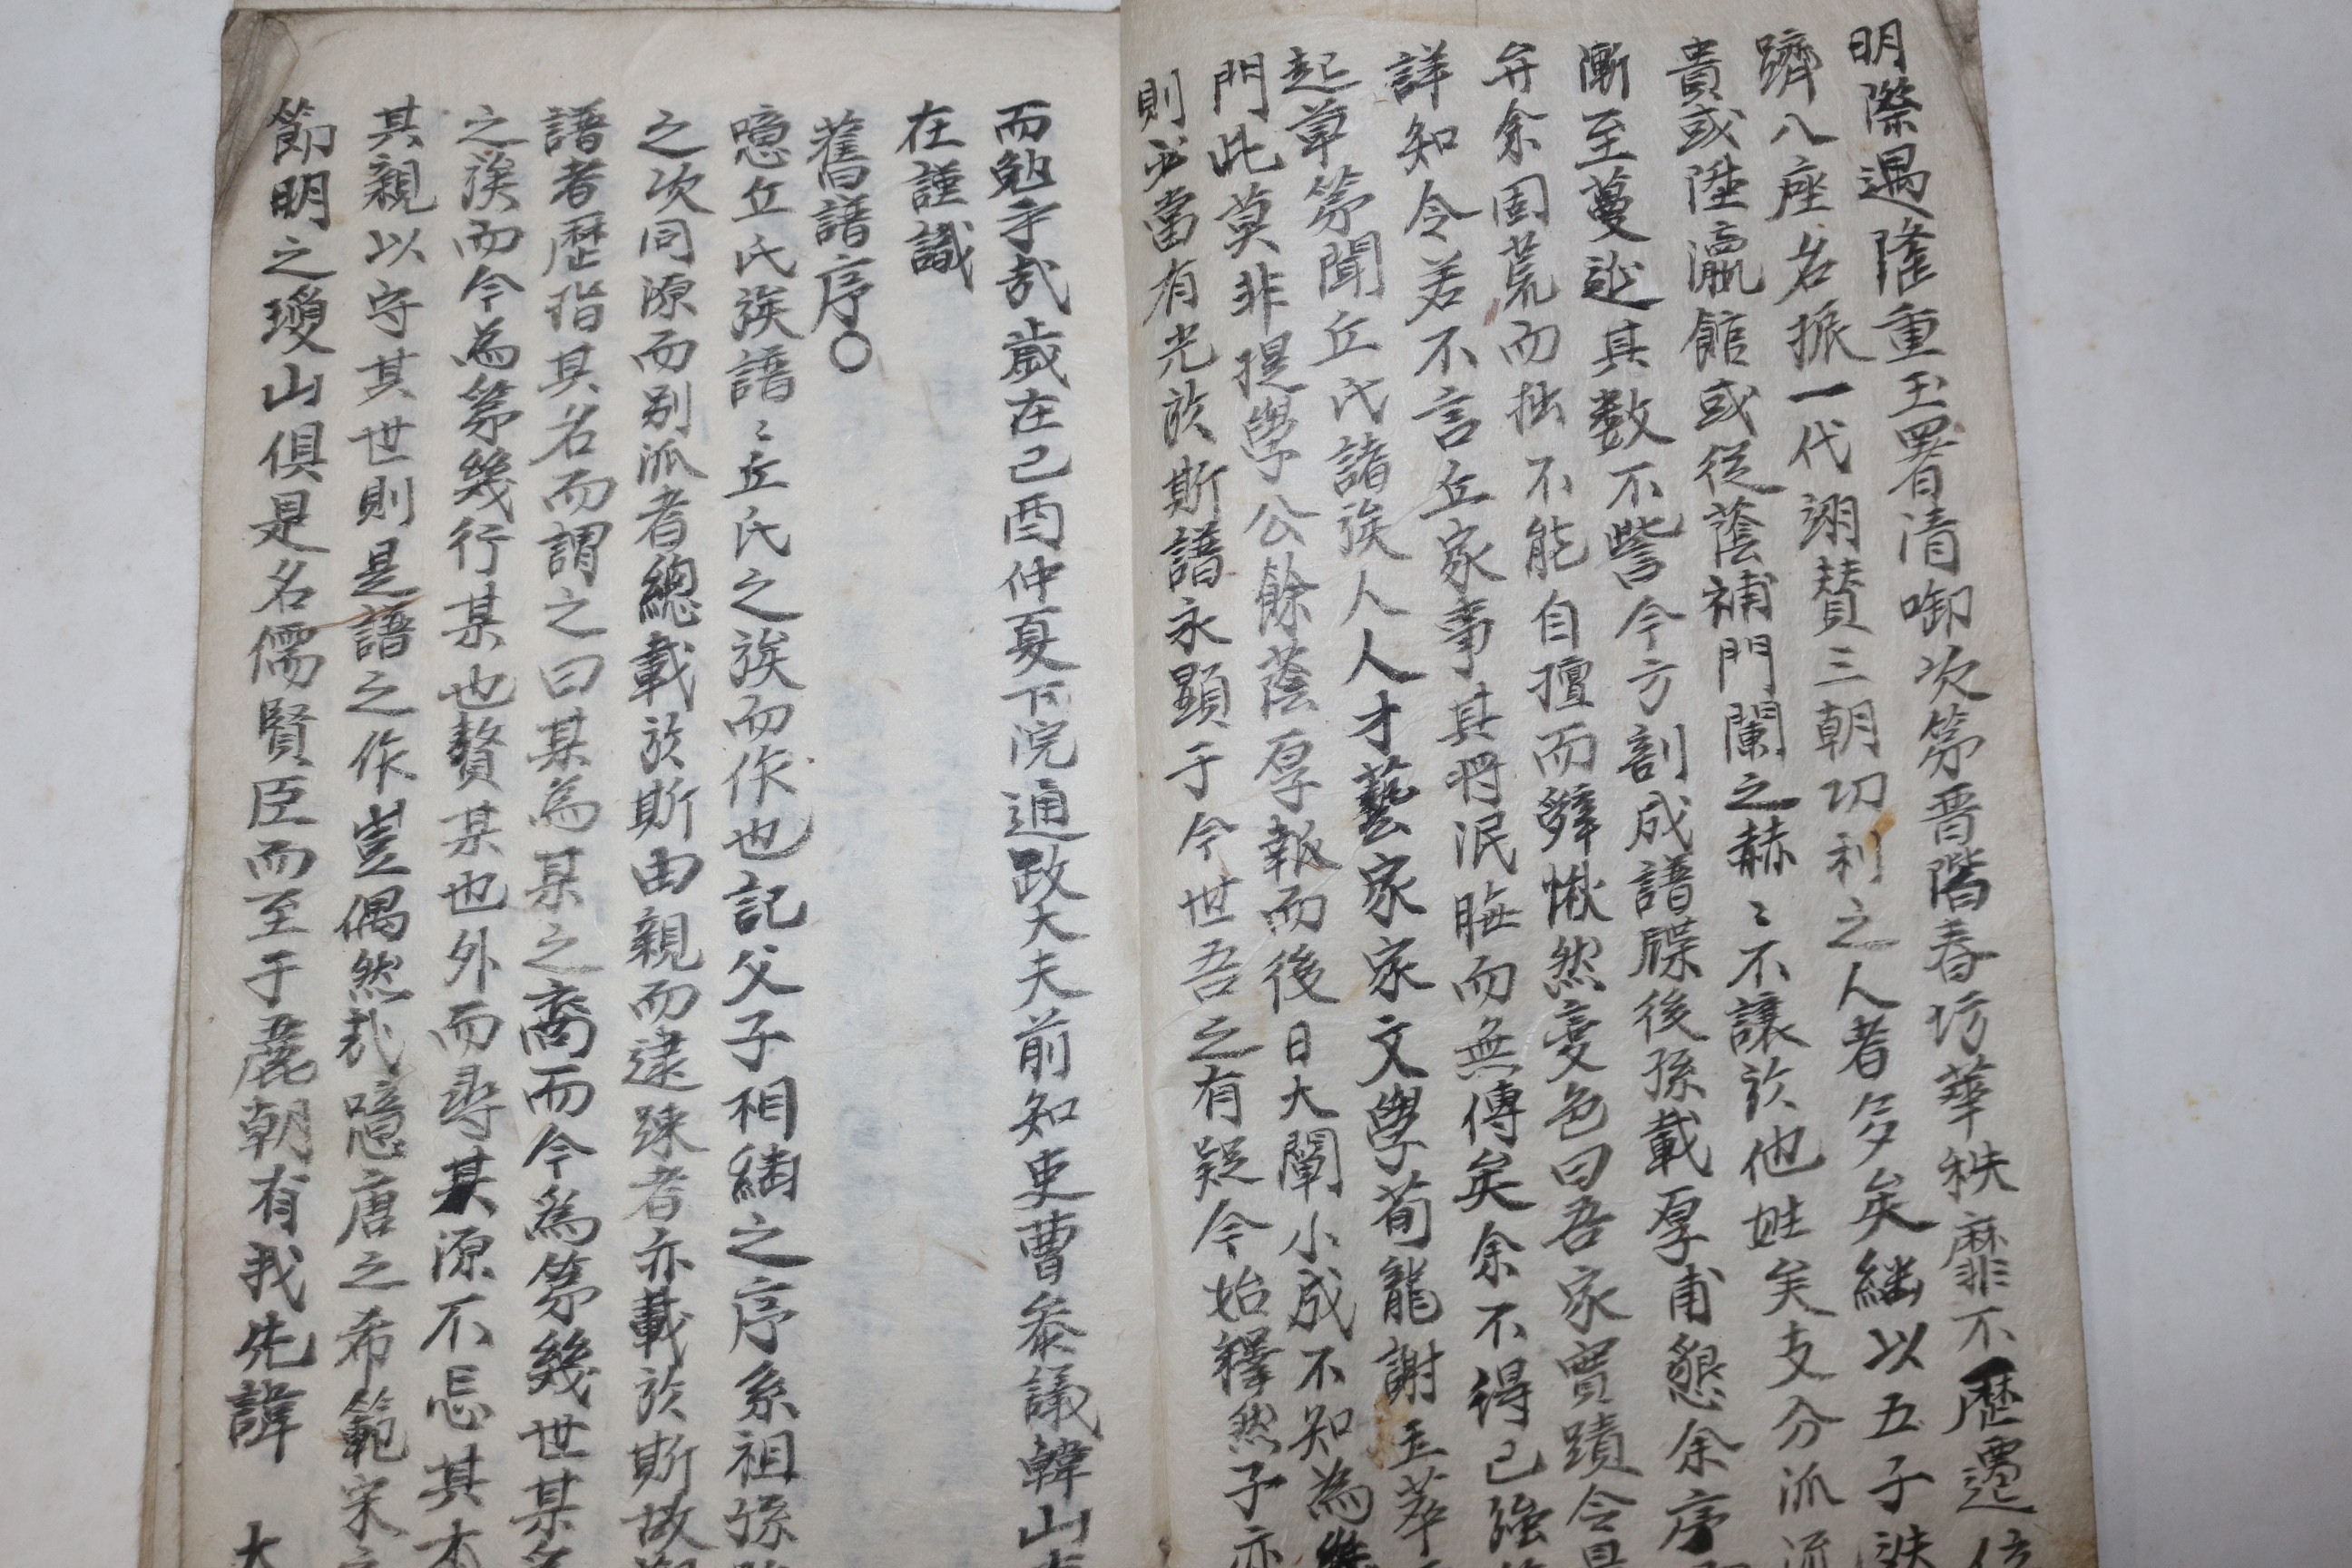 明際遇隆重玉署清啣次第晋階春坊華秩靡不歷遷
躋八座名振一代翊賛三朝功利之人者多矣継以五子
貴或陞瀛館或從蔭補門闌之赫〻不讓於他姓矣支分派流
漸至蔓延其数不訾今方剖成譜牒後孫載厚甫懇余序
弁余固荒而拙不能自擅而辭愀然変色曰吾家實蹟今
詳知今若不言丘家事其将泯晦而無傳矣余不得已強
起草第聞丘氏諸族人人才藝家家文學荀龍謝玉萃
門此莫非提學公餘蔭厚報而後日大闡小成不知為
則必當有光於斯譜永顯于今世吾之有疑今始釋然子亦
而勉乎哉歲在己酉仲夏下浣通政大夫前知吏曹叅議韓山
在謹識
舊譜序○
噫丘氏族譜〻丘氏之族而作也記父子相継之序系祖孫
之次同源而別派者總載於斯由親而逮踈者亦載於斯故
譜者歷指其名而謂之曰某為某之裔而今為第幾世某
之族而今為第幾行某也贅某也外而尋其源不忘其本
其親以守其世則是譜之作豈偶然哉噫唐之希範宋
節明之瓊山俱是名儒賢臣而至于麗朝有我先諱 大